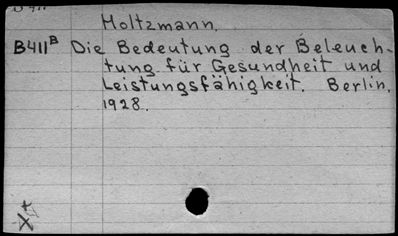 Holtzmann.
B411B Die Bedeutung der Beleuch-
tung für Gesundheit und
Leistungsfähigkeit. Berlin,
1928.